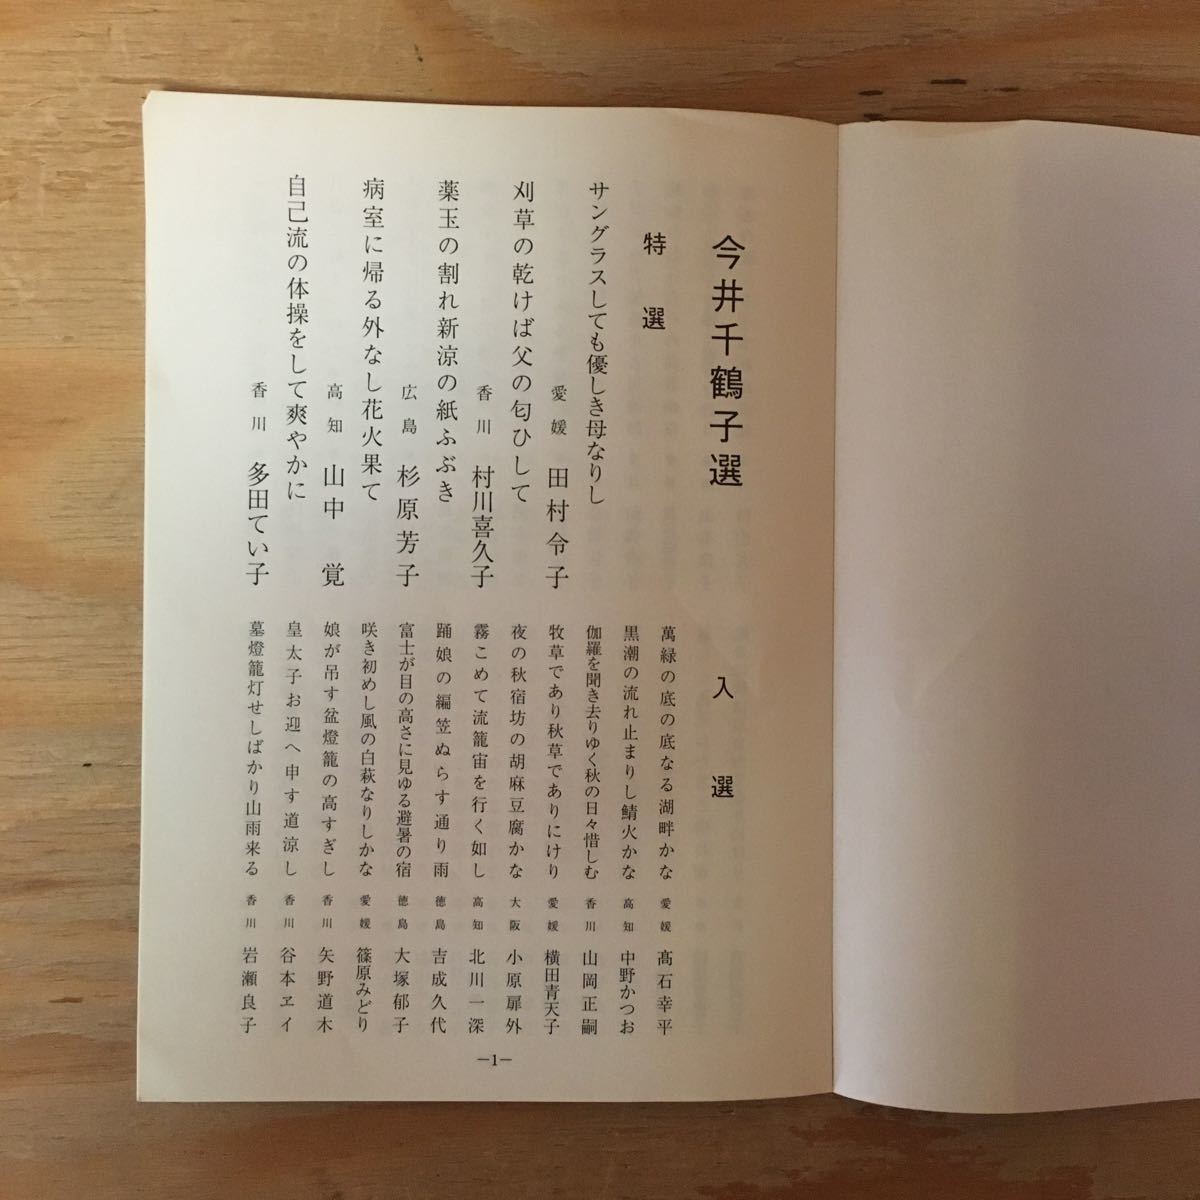 今井千鶴子選
特選
サングラスしても優しき母なりし
愛媛 田村令子
刈草の乾けば父の匂ひして
香川 村川喜久子
薬玉の割れ新涼の紙ふぶき
広島 杉原芳子
病室に帰る外なし花火果て
高知 山中 覚
自己流の体操をして爽やかに
香川 多田てい子
入選
萬緑の底の底なる湖畔かな 愛媛 髙石幸平
黒潮の流れ止まりし鯖火かな 高知 中野かつお
伽羅を聞き去りゆく秋の日々惜しむ 香川 山岡正嗣
牧草であり秋草でありにけり 愛媛 横田青天子
夜の秋宿坊の胡麻豆腐かな 大阪 小原扉外
霧こめて流籠宙を行く如し 高知 北川一深
踊娘の編笠ぬらす通り雨 徳島 吉成久代
富士が目の高さに見ゆる避暑の宿 徳島 大塚郁子
咲き初めし風の白萩なりしかな 愛媛 篠原みどり
娘が吊す盆燈籠の高すぎし 香川 矢野道木
皇太子お迎へ申す道涼し 香川 谷本ヱイ
墓燈籠灯せしばかり山雨来る 香川 岩瀬良子
—1—